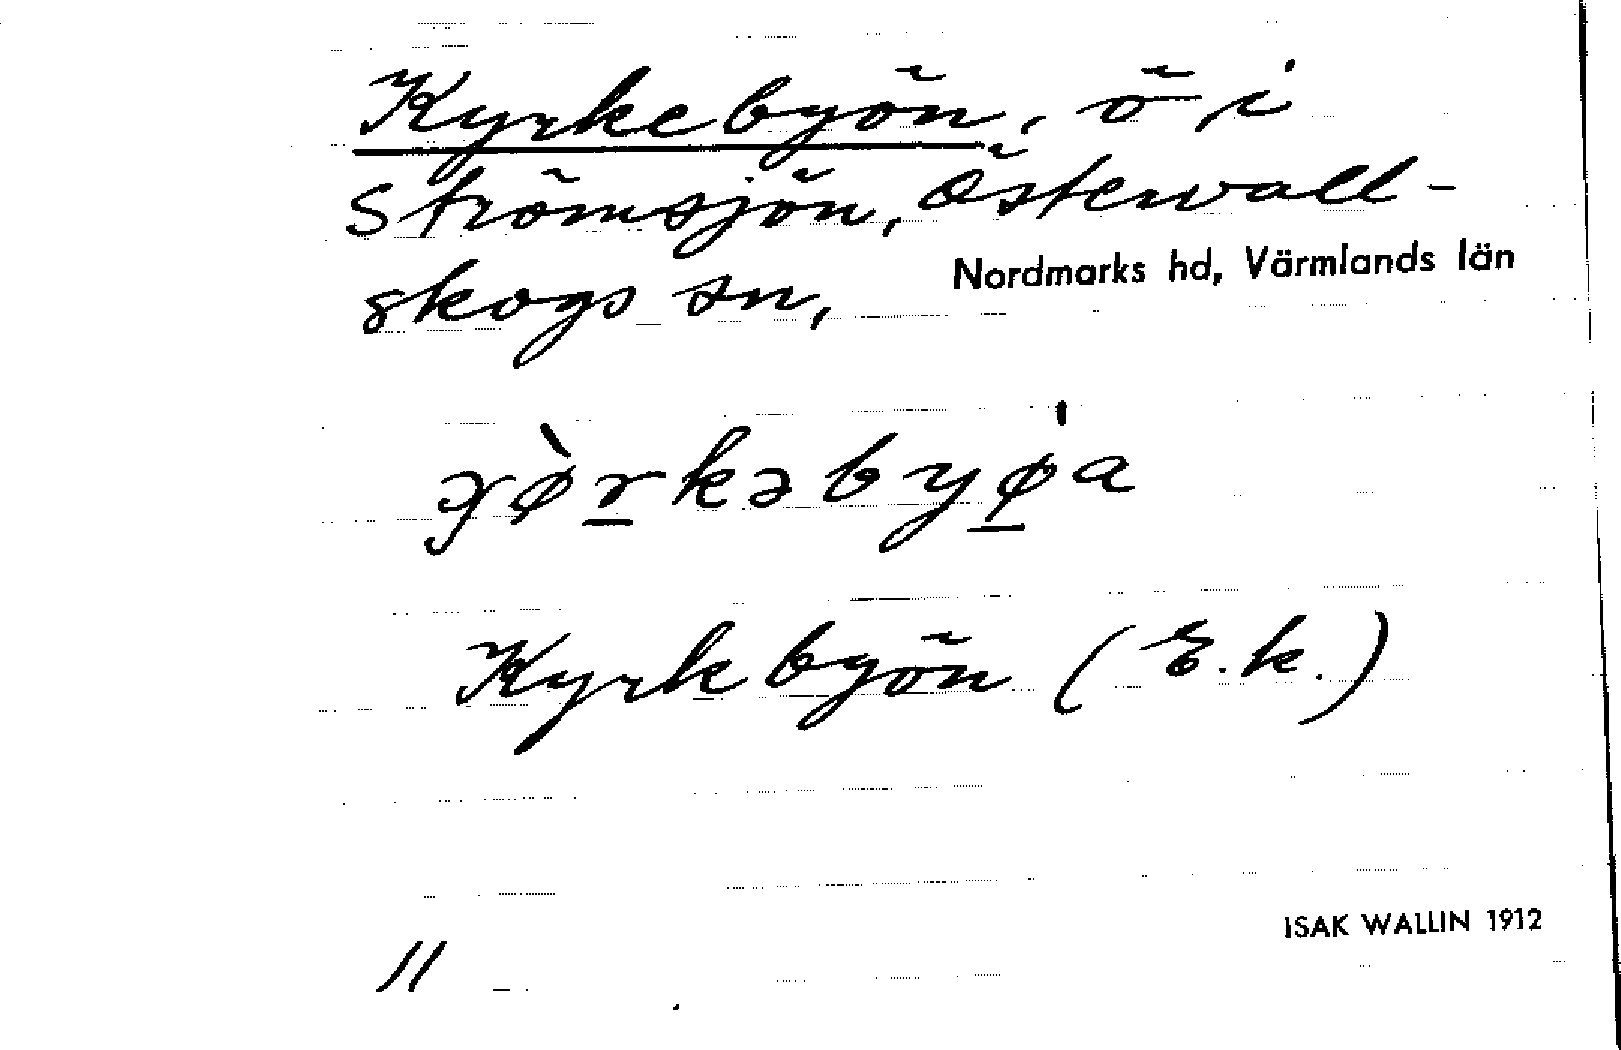 Kyrkebyön, ö i
Strömsjön, Östervall-
skogs sn, Nordmarks hd, Värmlands län
Kyrkbyön (E.k.)
ISAK WALLIN 1912
11